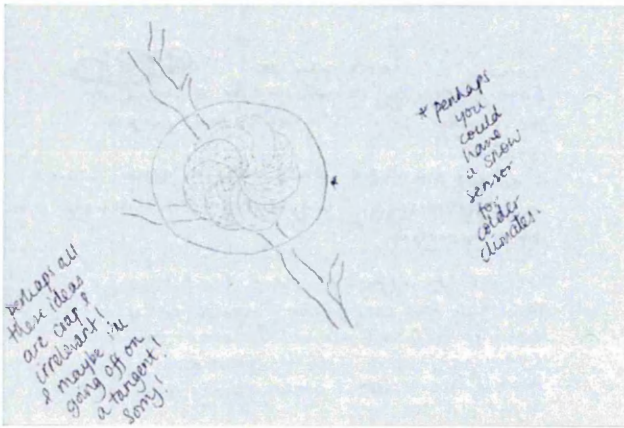 * perhaps
you
could
have
a snow
sensor
for
colder
climates.
*
perhaps all
these ideas
are crap &
irrelevant!
& maybe i'm
going off on
a tangent!
Sorry!